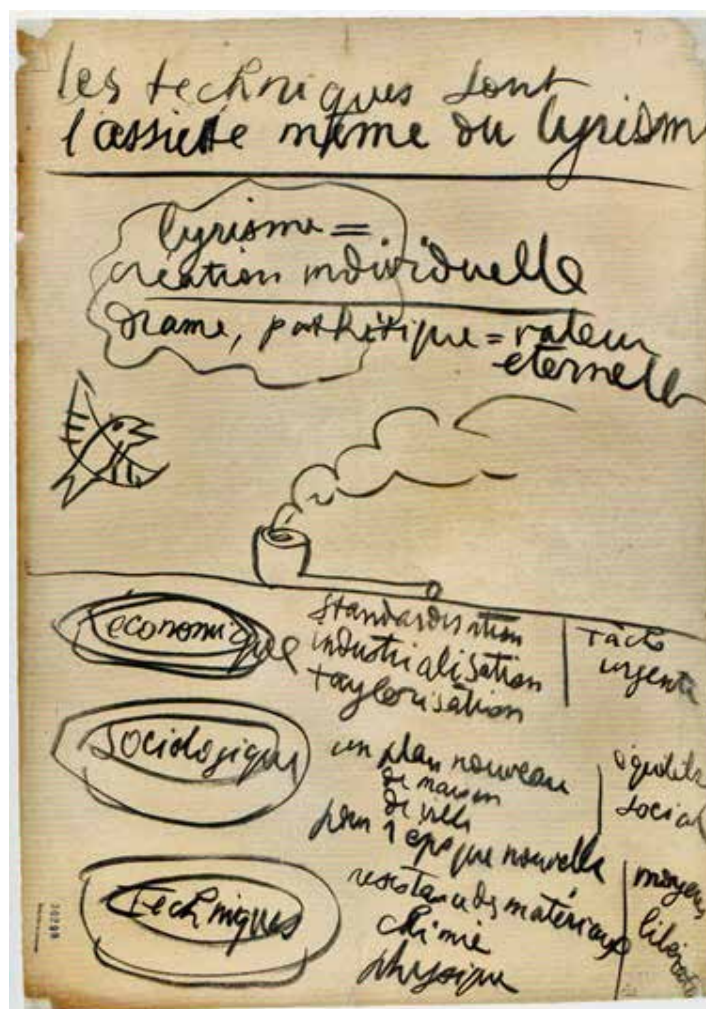 les techniques sont
l'assiette même du lyrism
lyrisme =
création individuelle
drame, pathétique = valeur
eternelle
économique
standardisation
industrialisation
taylorisation
tâche
urgente
sociologique
un plan nouveau
de maison
de ville
pour 1 epoque nouvelle
social
Techniques
resistance des matériaux
chimie
physique
moyens
30298